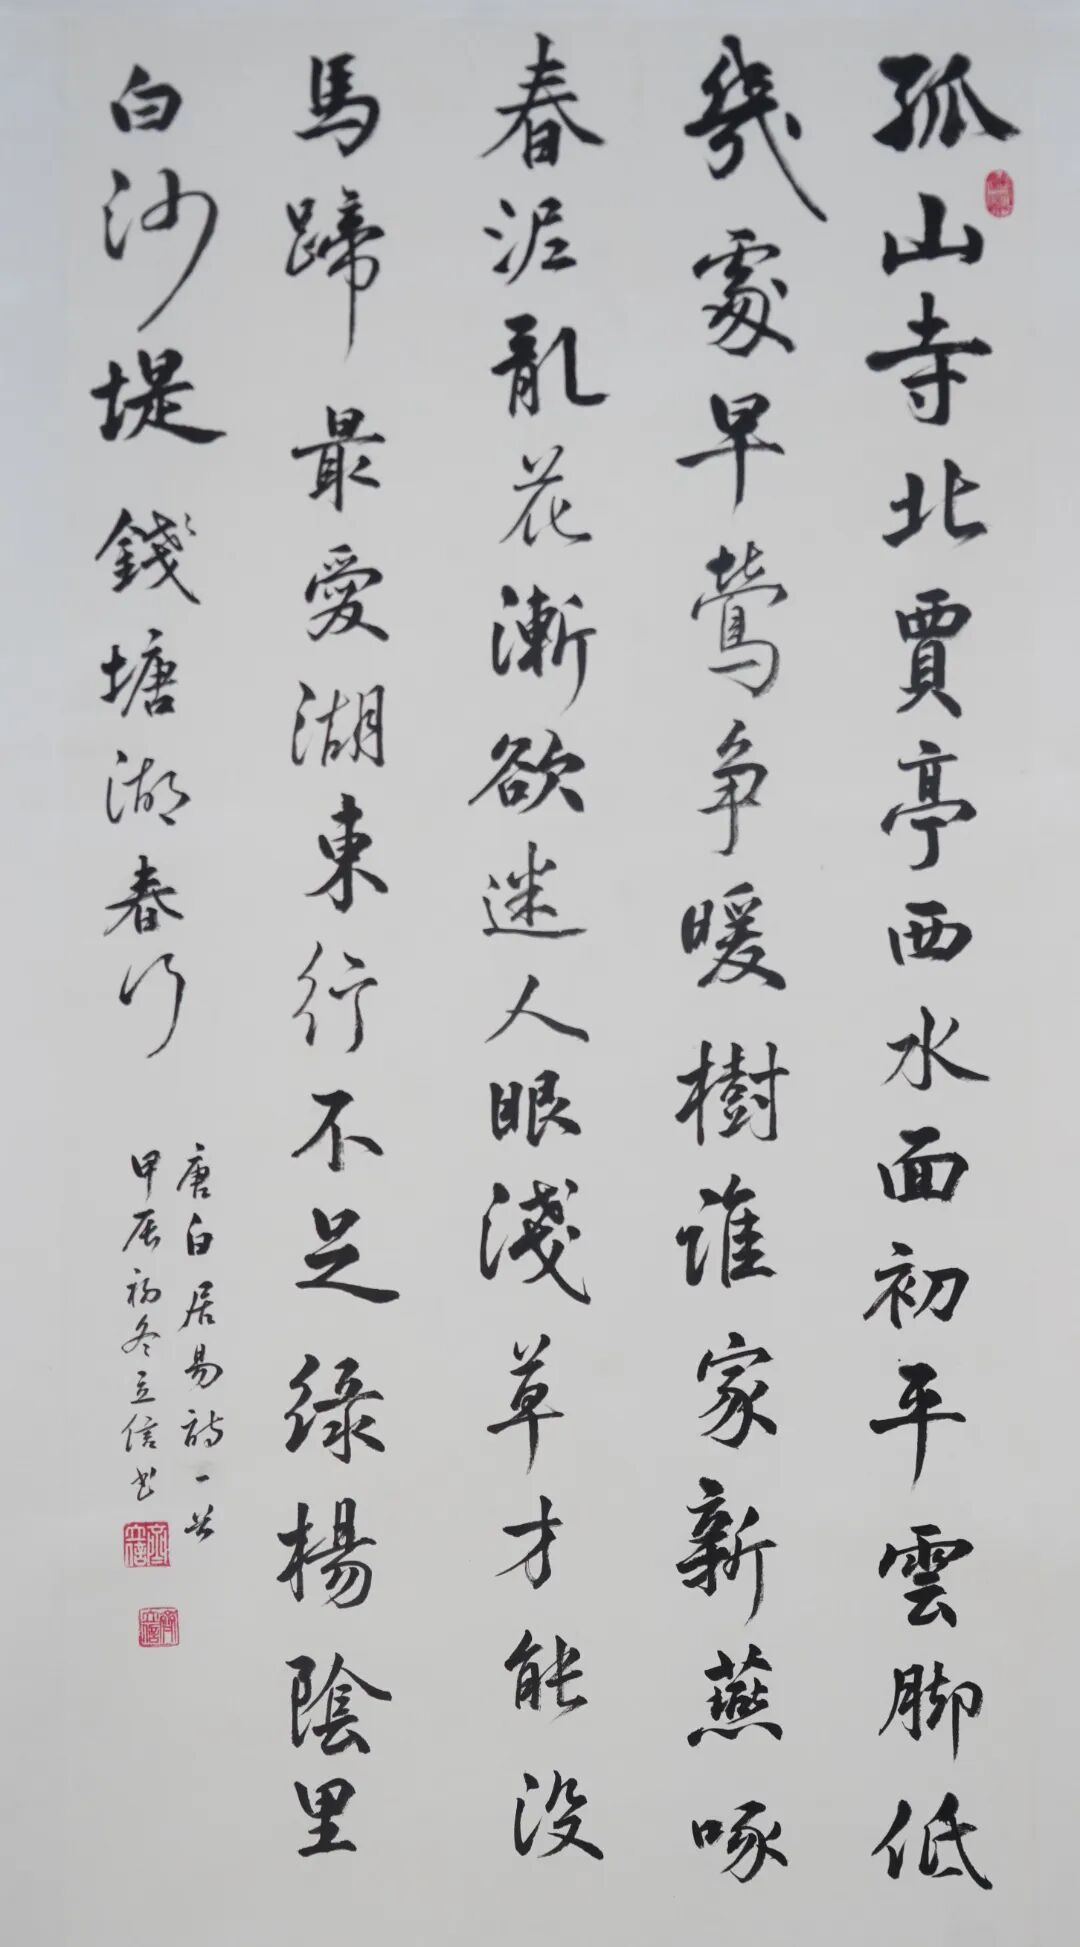 孤山寺北賈亭西水面初平雲脚低
幾處早鶯争暖樹誰家新燕啄
春泥亂花漸欲迷人眼淺草才能没
馬蹄最愛湖東行不足綠楊陰里
白沙堤 錢塘湖春行
唐白居易詩一首
甲辰初冬立信书